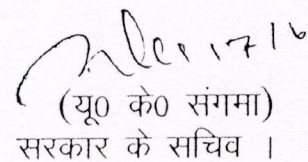 17/6
(यू0 के0 संगमा)
सरकार के सचिव ।